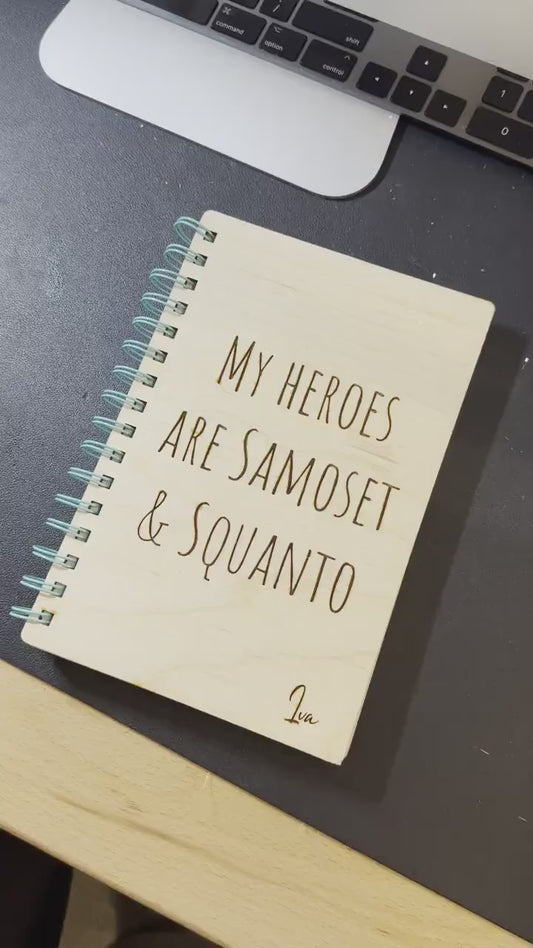 command
option
shift
control
1
0
My heroes
are Samoset
& Squanto
Iva